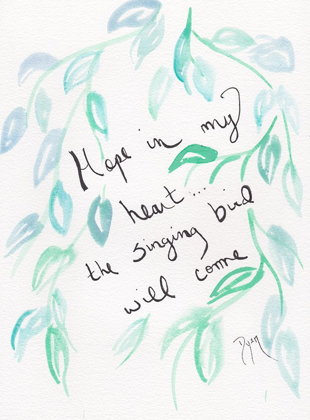 Hope in my
heart....
the singing bird
will come